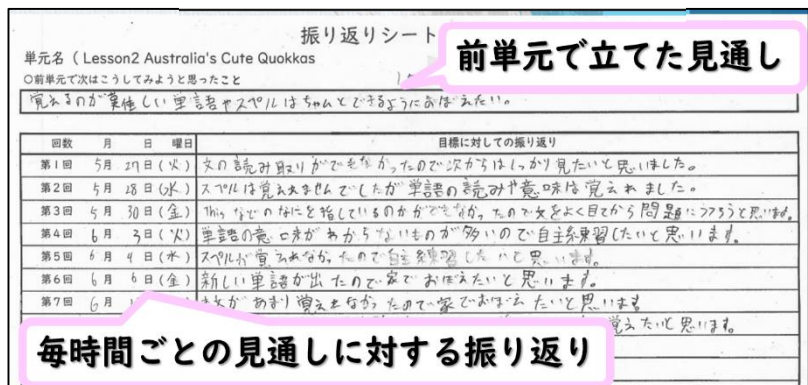 振り返りシート
前単元で立てた見通し
単元名 ( Lesson2 Australia's Cute Quokkas
○前単元で次はこうしてみようと思ったこと
覚えるのが難しい単語やスペルはちゃんとできるようにおぼえたい。
回数 月 日 曜日 目標に対しての振り返り
第1回 5月 27日(火) 文の読み取りができなかったので次からはしっかり見たいと思いました。
第2回 5月 28日(水) スペルは覚えれませんでしたが単語の読みや意味は覚えれました。
第3回 5月 30日(金) Thisなどのなにを指しているのかができなかったので文をよく見てから問題にうつろうと思います。
第4回 6月 3日(火) 単語の意味がわからないものが多いので自主練習したいと思います。
第5回 6月 4日(水) スペルが覚えれなかったので自主練習したいと思います。
第6回 6月 6日(金) 新しい単語が出たので家でおぼえたいと思います。
第7回 6月 があまり覚えれなかったので家でおぼえたいと思います
覚えたいと思います。
毎時間ごとの見通しに対する振り返り